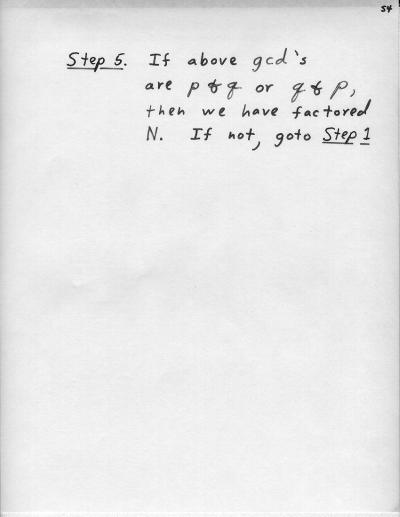 54
Step 5. If above gcd's
are p & q or q & p,
then we have factored
N. If not, goto Step 1